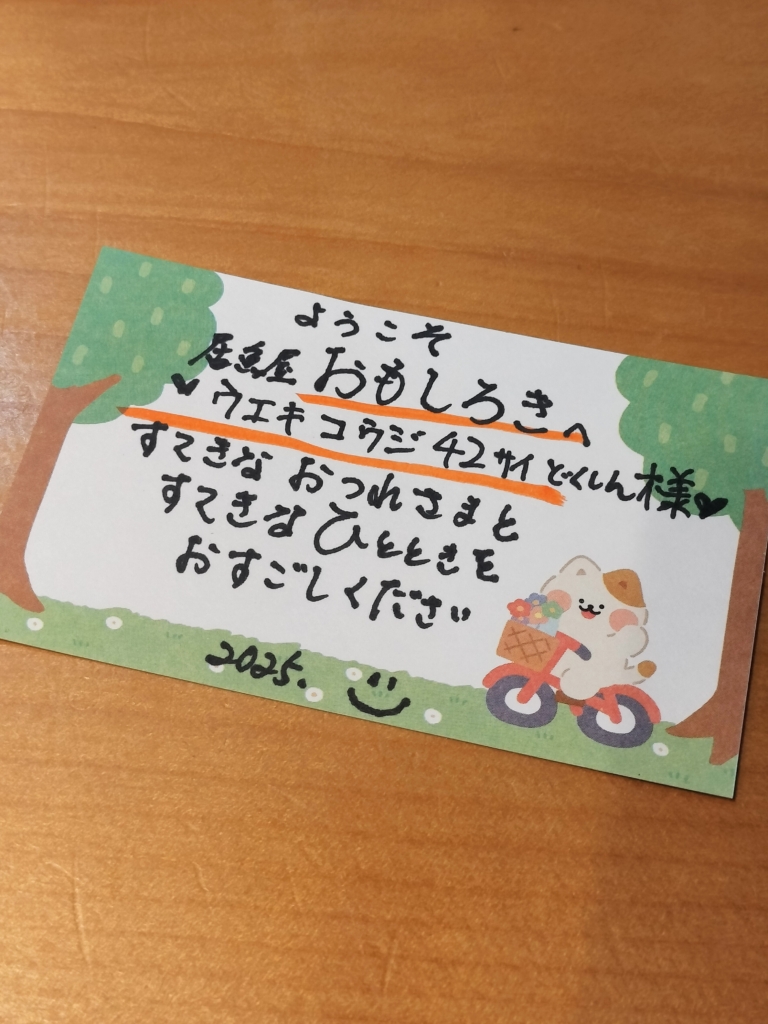 ようこそ
居魚屋 おもしろきへ
♥ウエキ コウジ 42サイ どくしん様♥
すてきな おつれさまと
すてきな ひとときを
おすごしください
2025.